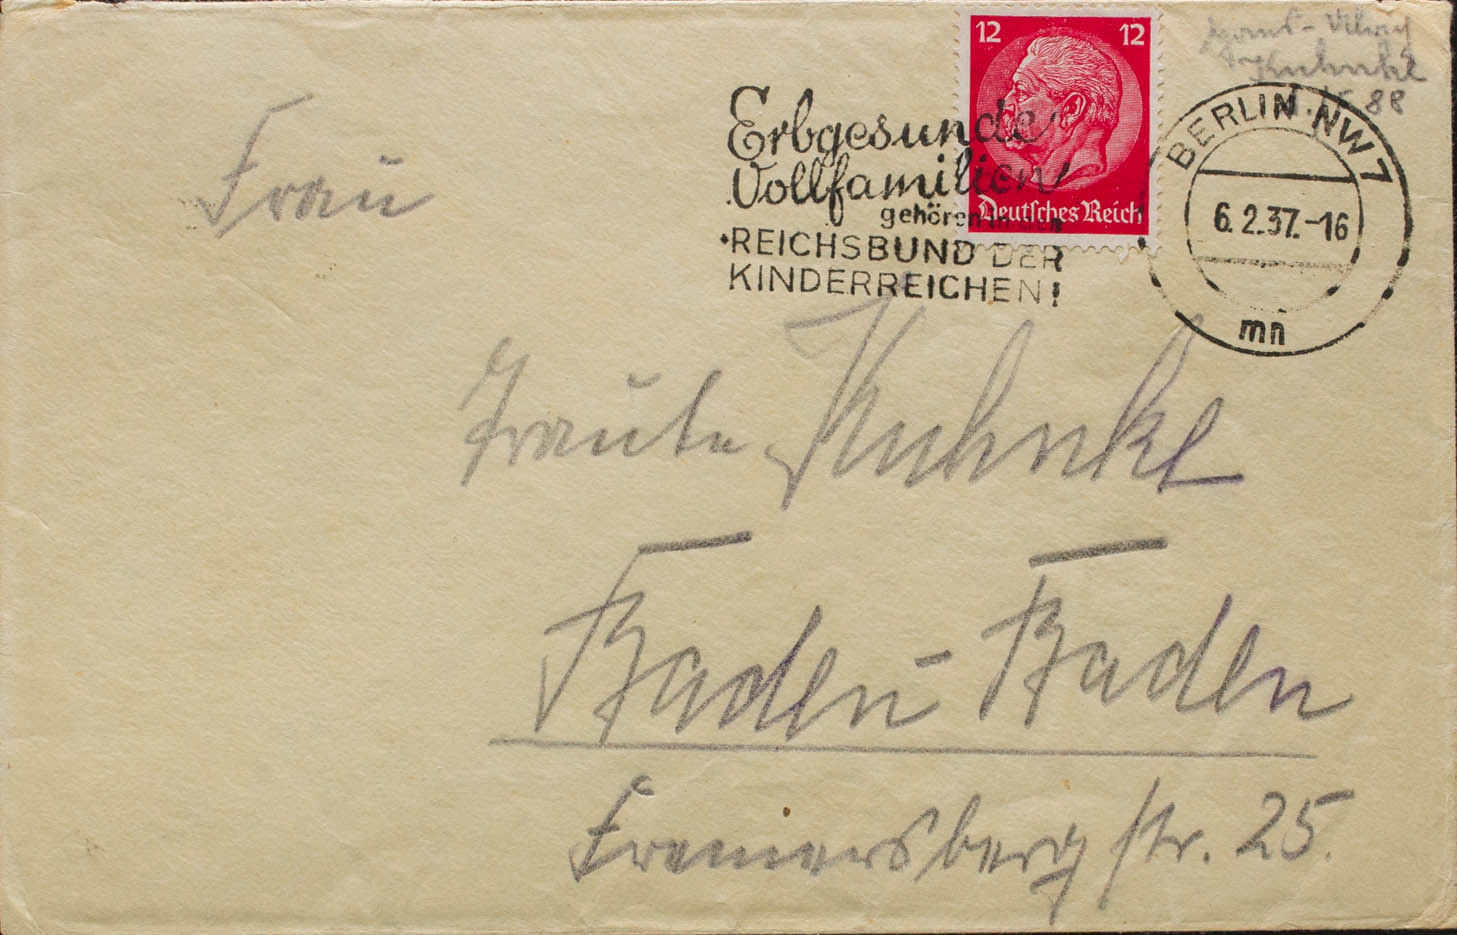 12 12
Deutsches Reich
Erbgesunde
Vollfamilien
gehören in den
REICHSBUND DER
KINDERREICHEN!
BERLIN NW 7
6.2.37.-16
mn
Kuhnke
88
Frau
Traute Kuhnke
Baden-Baden
Fremersbergstr. 25.